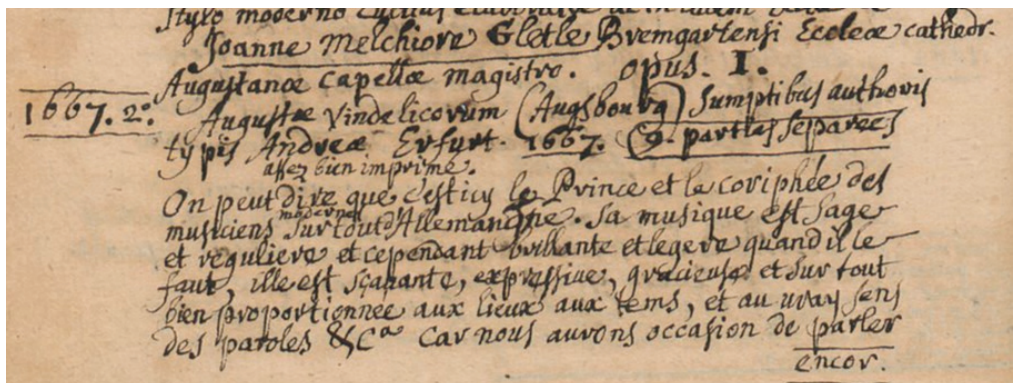 stylo moderno
Joanne Melchiore Gletle Bremgartensi Eccleæ cathedr.
Augustanæ capellæ magistro. opus. I.
1667. 2º. Augustæ Vindelicorum (Augsbourg) Sumptibus authoris
typis Andreæ Erfurt. 1667. (9. partles separees
assez bien imprimé.
On peut dire que c'est icy le Prince et le coriphée des
musiciens modernes surtout d'Allemangne. Sa musique est sage
et reguliere et cependant brillante et legere quand il le
faut, ille est sçavante, expressive, gracieuse et sur tout
bien proportionnée aux lieux aux tems, et au vray sens
des paroles &Ca Car nous aurons occasion de parler
encor.